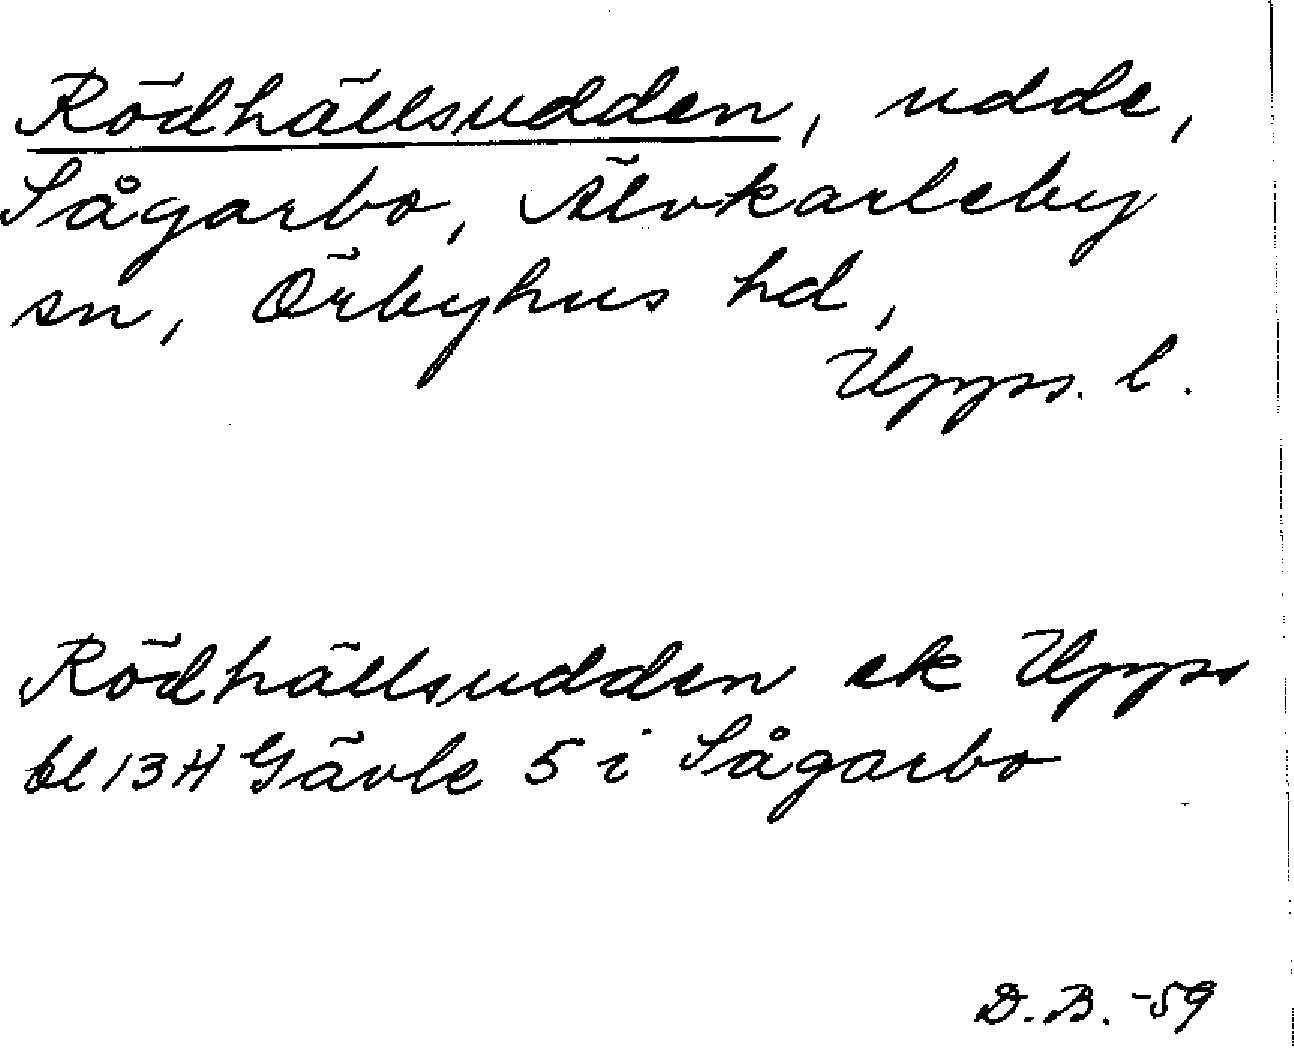 Rödhällsudden, udde,
Sågarbo, Älvkarleby
sn, Örbyhus hd,
Upps. l.
Rödhällsudden ek Upps
bl 13H Gävle 5 i Sågarbo
D.B. -59